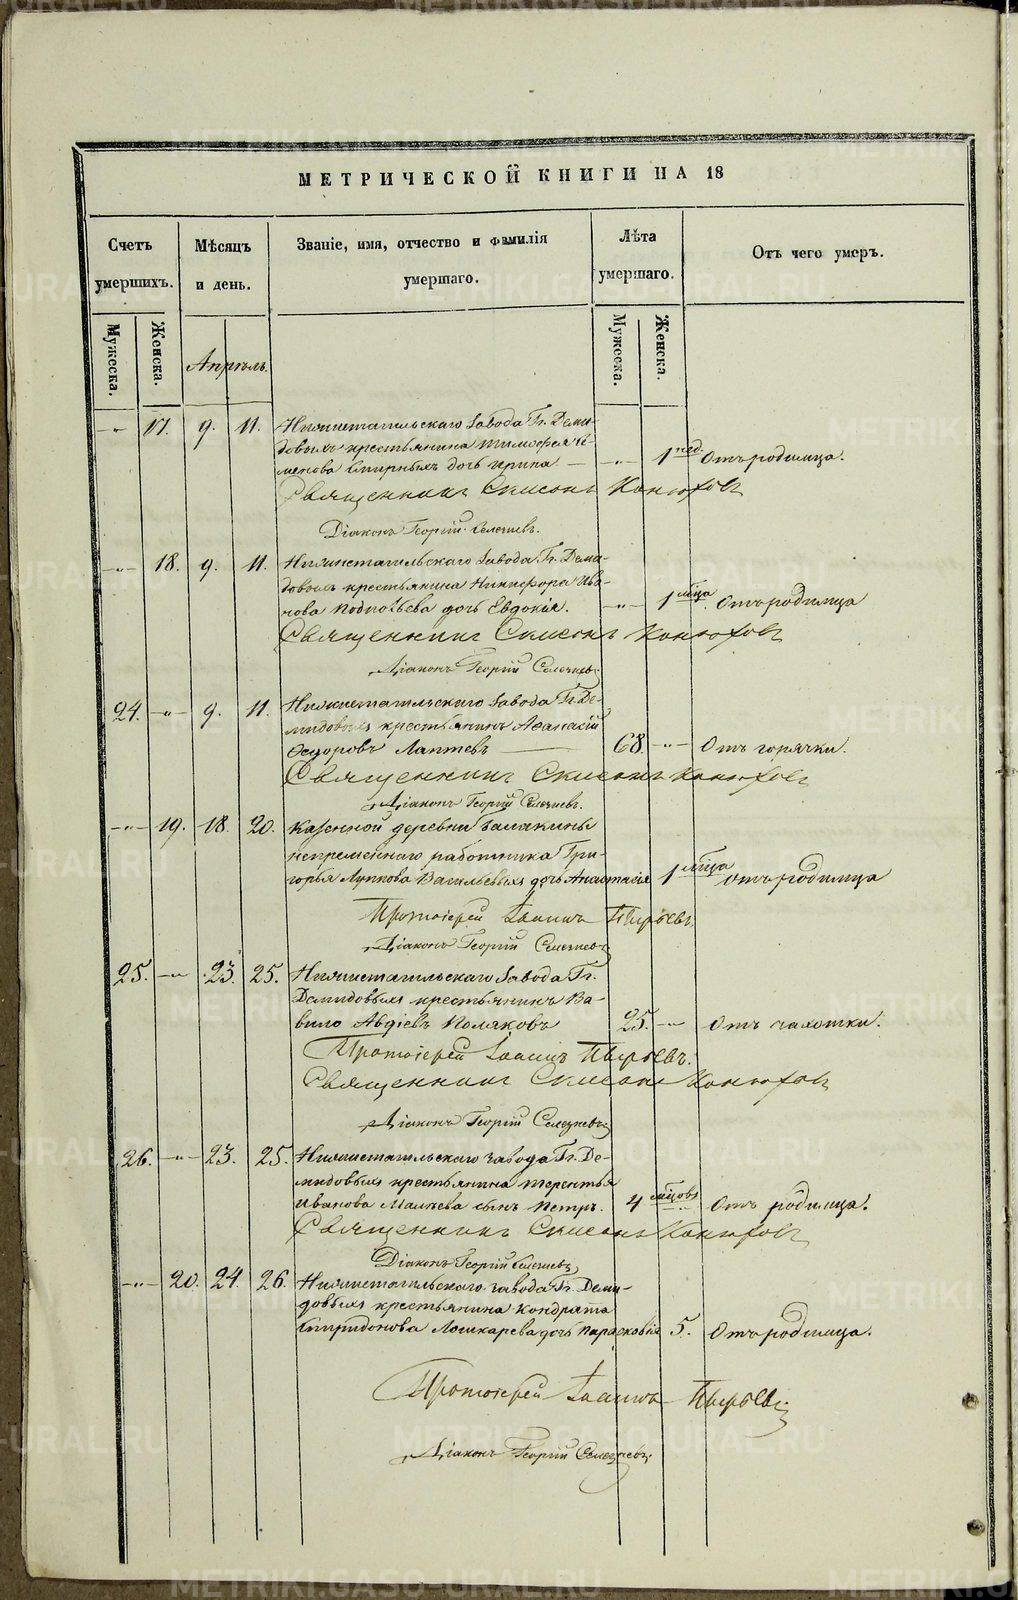 МЕТРИЧЕСКОЙ КНИГИ НА 18
Счетъ умершихъ.
Мѣсяцъ и день.
Званіе, имя, отчество и фамилія умершаго.
Лѣта умершаго.
Отъ чего умеръ.
Мужеска.
Женска.
Апрѣль.
Мужеска.
Женска.
-"- 17. 9. 11. Нижнетагильскаго Завода Гг. Деми-
довыхъ крестьянина Тимофея
Смирныхъ дочь Ирина — -"- 1 нед. Отъ родимца.
Священникъ Симеонъ Конюховъ
Діаконъ Георгій Селезневъ.
-"- 18. 9. 11. Нижнетагильскаго Завода Гг. Деми-
довыхъ крестьянина Никифора Ива-
нова дочь Евдокія. -"- 1 мѣсца. Отъ родимца
Священникъ Симеонъ Конюховъ
Діаконъ Георгій Селезневъ.
24. -"- 9. 11. Нижнетагильскаго Завода Гг. Де-
мидовыхъ крестьянинъ Афанасій
Ѳедоровъ Лаптевъ — 68. -"- Отъ горячки.
Священникъ Симеонъ Конюховъ
Діаконъ Георгій Селезневъ.
-"- 19. 18. 20. Казенной деревни Балакины
непременнаго работника Гри-
горья Лупкова Васильевыхъ дочь Анастасія 1 мѣсца Отъ родимца
Протоіерей Іоаннъ Пырьевъ.
Діаконъ Георгій Селезневъ
25. -"- 23. 25. Нижнетагильскаго Завода Гг.
Демидовыхъ крестьянинъ Ва-
вило Авдіевъ Поляковъ 25. -"- Отъ чахотки.
Протоіерей Іоаннъ Пырьевъ.
Священникъ Симеонъ Конюховъ
Діаконъ Георгій Селезневъ
26. -"- 23. 25. Нижнетагильскаго завода Гг. Де-
мидовыхъ крестьянина Терентья
Иванова сынъ Петръ. 4 мѣсцовъ Отъ родимца.
Священникъ Симеонъ Конюховъ
Діаконъ Георгій Селезневъ
-"- 20. 24. 26. Нижнетагильскаго завода Гг. Деми-
довыхъ крестьянина Кондрата
Спиридонова Лошкарева дочь Парасковія 5. Отъ родимца.
Протоіерей Іоаннъ Пырьевъ
Діаконъ Георгій Селезневъ.
METRIKI.GASO-URAL.RU